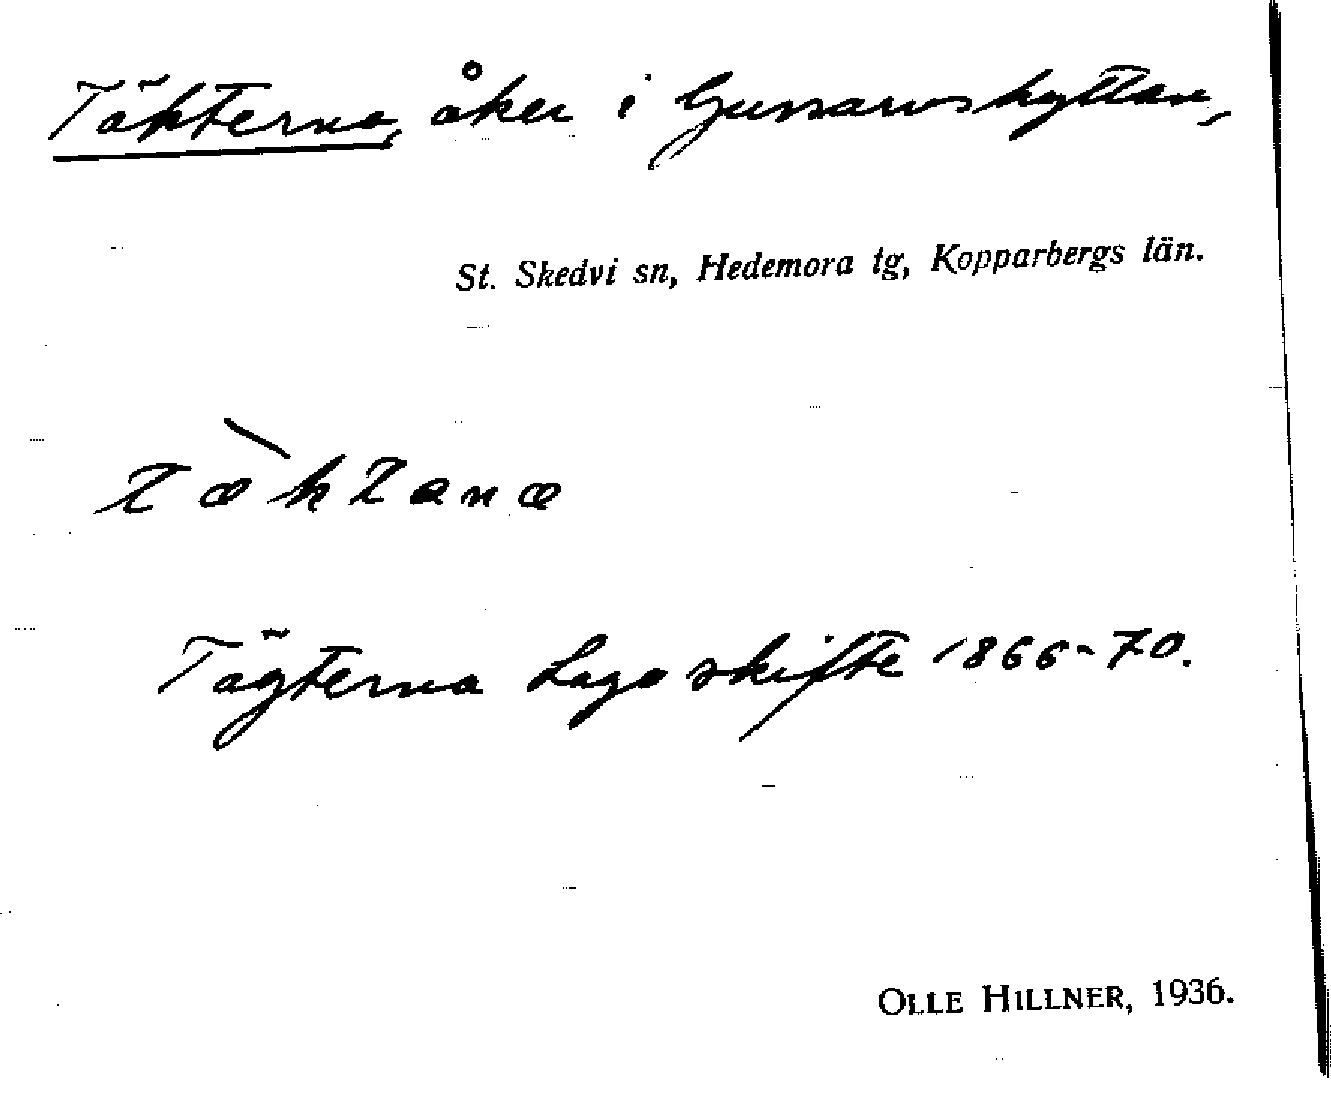 Täkterna, åker i Gussarvshyttan,
St. Skedvi sn, Hedemora tg, Kopparbergs län.
tæ̀ktanæ
Tägterna Laga skifte 1866-70.
OLLE HILLNER, 1936.